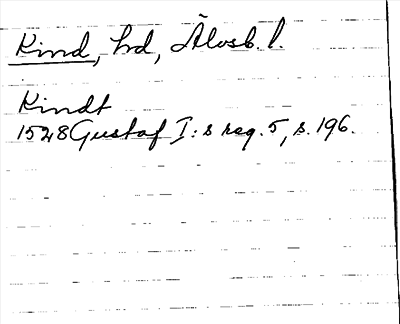 Kind, hd, Älvsb. l.
Kindt
1528 Gustaf I:s reg. 5, s. 196.